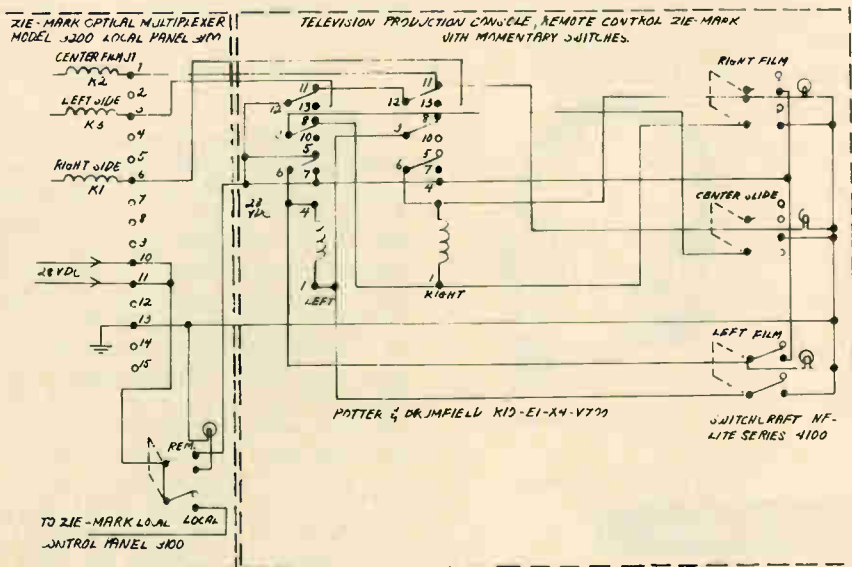 ZIE-MARK OPTICAL MULTIPLEXER
MODEL 3200 LOCAL PANEL 3100
TELEVISION PRODUCTION CONSOLE, REMOTE CONTROL ZIE-MARK
WITH MOMENTARY SWITCHES.
CENTER
K2
LEFT SIDE
K3
RIGHT SIDE
K1
1
2
3
4
5
6
7
8
9
10
11
12
13
14
15
28 VDC
REM.
LOCAL
TO ZIE-MARK LOCAL
CONTROL PANEL 3100
11
12
13
8
10
5
6
7
4
28
VDC
1
LEFT
11
12
13
8
9
10
5
6
7
4
1
RIGHT
RIGHT FILM
CENTER SLIDE
LEFT FILM
POTTER & BRUMFIELD
SWITCHCRAFT
LITE SERIES 4100